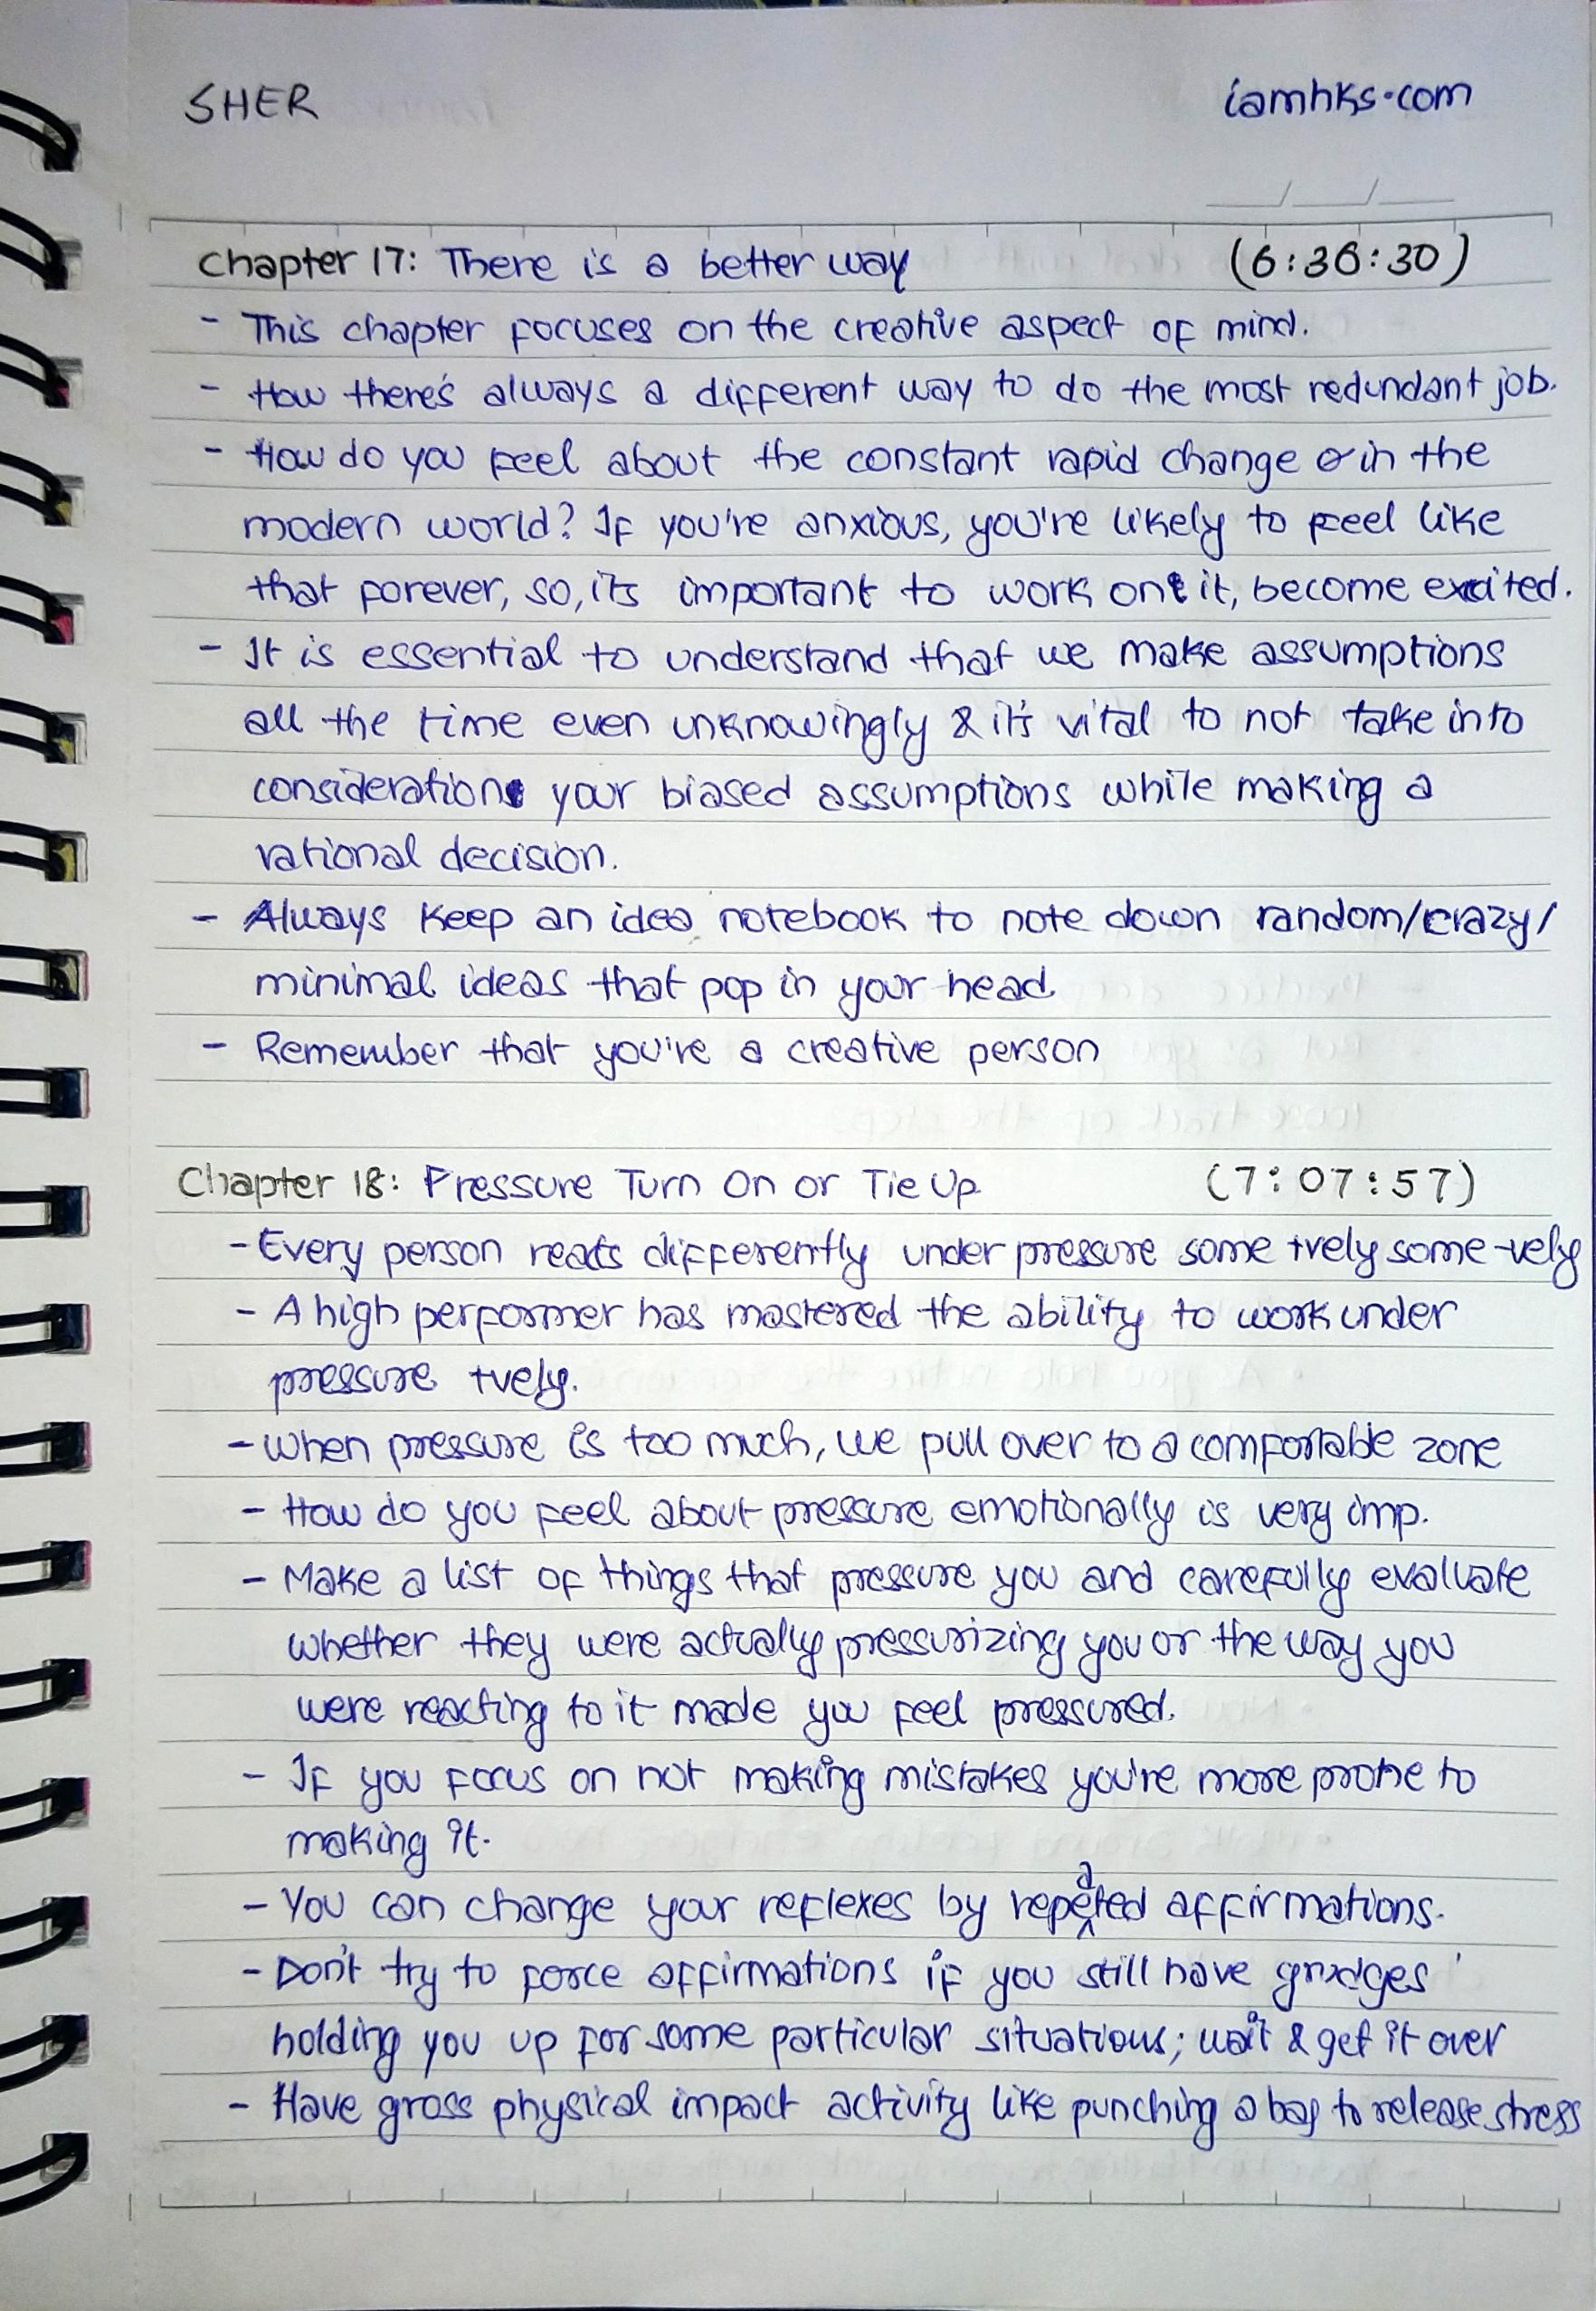 SHER
iamhks.com
Chapter 17: There is a better way (6:36:30)
- This chapter focuses on the creative aspect of mind.
- How there's always a different way to do the most redundant job.
- How do you feel about the constant rapid change in the
modern world? If you're anxious, you're likely to feel like
that forever, so, it's important to work on it, become excited.
- It is essential to understand that we make assumptions
all the time even unknowingly & it's vital to not take into
consideration your biased assumptions while making a
rational decision.
- Always keep an idea notebook to note down random/crazy/
minimal ideas that pop in your head
- Remember that you're a creative person
Chapter 18: Pressure Turn On or Tie Up (7:07:57)
- Every person reacts differently under pressure some +vely some -vely
- A high performer has mastered the ability to work under
pressure +vely.
- When pressure is too much, we pull over to a comfortable zone
- How do you feel about pressure emotionally is very imp.
- Make a list of things that pressure you and carefully evaluate
whether they were actually pressurizing you or the way you
were reacting to it made you feel pressured.
- If you focus on not making mistakes you're more prone to
making it.
- You can change your reflexes by repeated affirmations.
- Don't try to force affirmations if you still have grudges
holding you up for some particular situations; wait & get it over
- Have gross physical impact activity like punching a bag to release stress